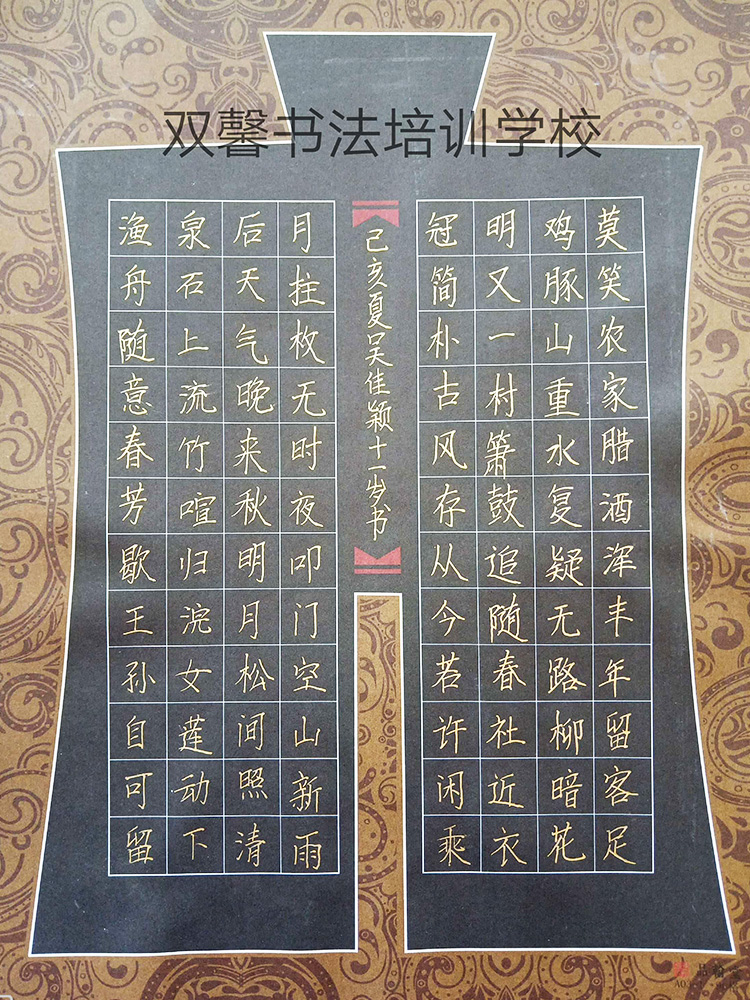 双馨书法培训学校
莫笑农家腊酒浑丰年留客足
鸡豚山重水复疑无路柳暗花
明又一村箫鼓追随春社近衣
冠简朴古风存从今若许闲乘
月拄枚无时夜叩门空山新雨
后天气晚来秋明月松间照清
泉石上流竹喧归浣女莲动下
渔舟随意春芳歇王孙自可留
己亥夏吴佳颖十一岁书